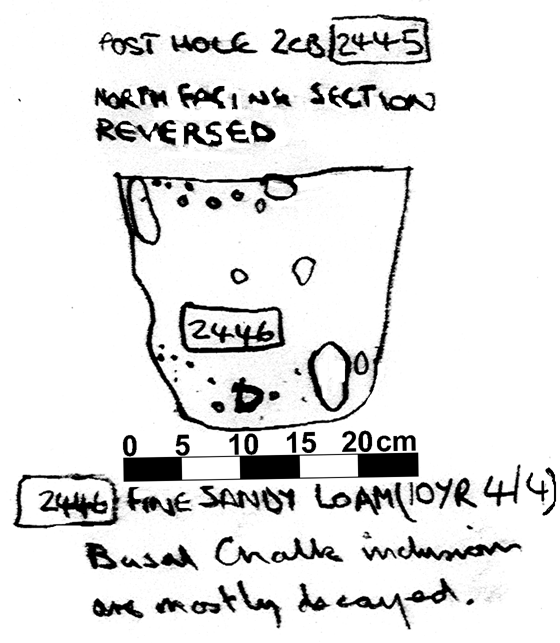 POST HOLE 2CB 2445
NORTH FACING SECTION
REVERSED
2446
0 5 10 15 20 cm
2446 FINE SANDY LOAM (10YR 4/4)
Basal Chalk inclusions
are mostly decayed.